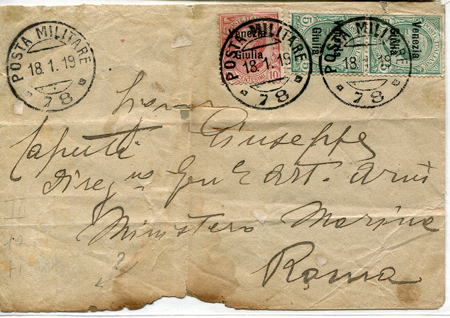 POSTA MILITARE
18.1.19
78
Venezia
Giulia
10
POSTA MILITARE
18.1.19
78
5
Venezia
Giulia
Venezia
Giulia
POSTA MILITARE
18.1.19
78
Giuseppe
Caputi
Direz Gen Art. Armi
Ministero Marina
Roma